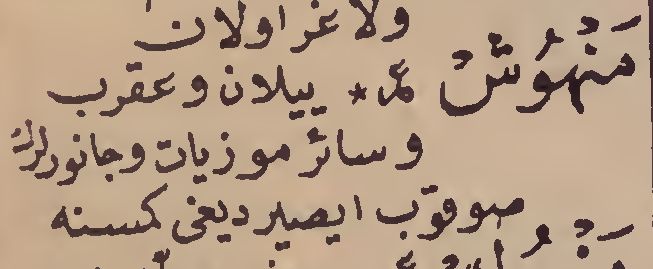 ولاغر اولان
مَنْهُوشْ عر * ييلان و عقرب
و سائر موزيات و جانورلرك
صوقوب ايصيرديغى كمسنه